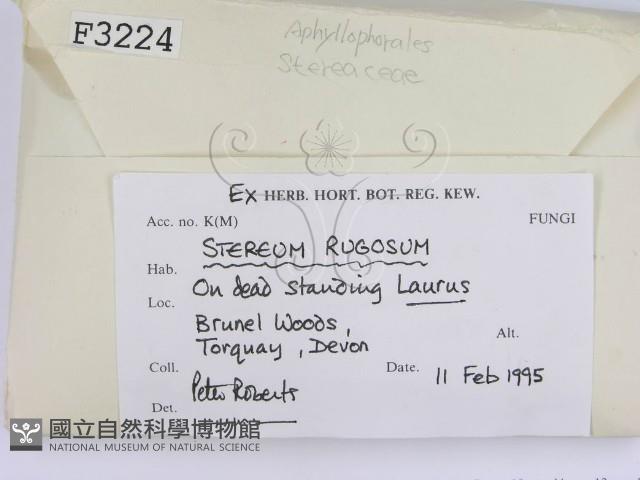 F3224
Aphyllophorales
Stereaceae
Ex HERB. HORT. BOT. REG. KEW.
Acc. no. K(M)
FUNGI
STEREUM RUGOSUM
Hab.
On dead standing Laurus
Loc.
Brunel Woods,
Torquay, Devon
Alt.
Coll.
Peter Roberts
Date.
11 Feb 1995
Det.
國立自然科學博物館
NATIONAL MUSEUM OF NATURAL SCIENCE